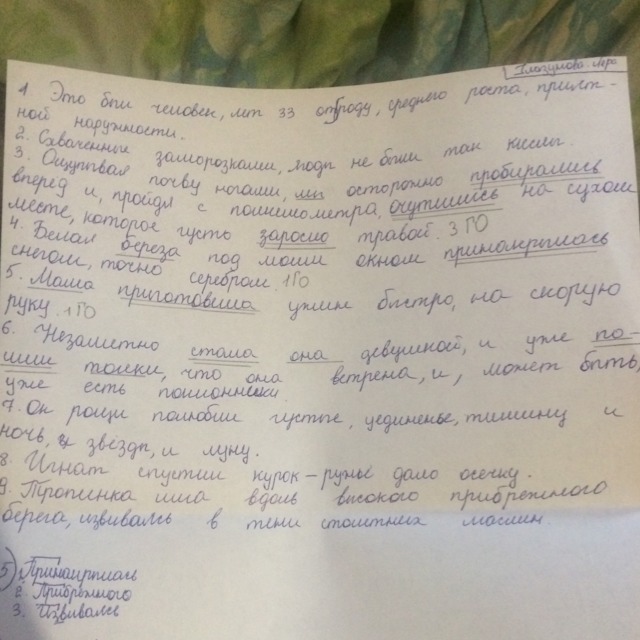 Глазунова Лера
1 Это был человек, лет 33 отроду, среднего роста, прият-
ной наружности.
2. Схваченные заморозками, ягоды не были так кислы.
3. Ощупывая почву ногами, мы осторожно пробирались
вперёд и, пройдя с полкилометра, очутились на сухом
месте, которое густо заросло травой. 3 ГО
4. Белая береза под моим окном принакрылась
снегом, точно серебром. 1ГО
5. Мама приготовила ужин быстро, на скорую
руку. 1ГО
6. Незаметно стала она девушкой, и уже по-
шли толки, что она ветрена, и, может быть,
уже есть поклонники.
7. Он рощи полюбил густые, уединенье, тишину и
ночь, и звезды, и луну.
8. Игнат спустил курок - ружьё дало осечку.
9. Тропинка шла вдоль высокого прибрежного
берега, извиваясь в тени столетних маслин.
5) 1. Принакрылась
2. Прибрежного
3. Извиваясь